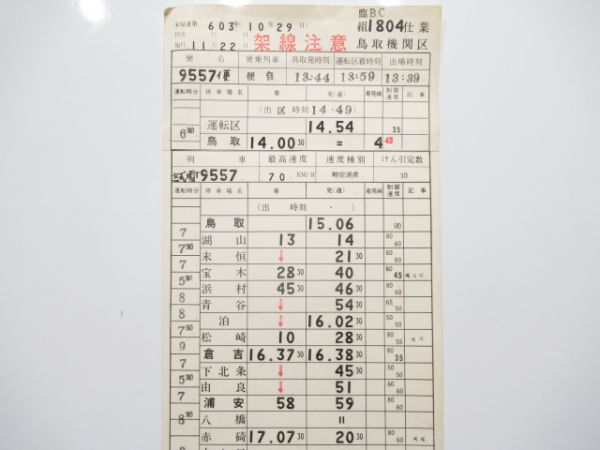 臨BC
603 10月29日
組1804仕業
施行11月22日
架線注意
鳥取機関区
便名 便乗列車 鳥取発時刻 運転区着時刻 出場時刻
9557便 便自 13:44 13:59 13:39
運転時分 停車場名 着 発(通) 着発線 制限速度 記事
(出区時刻14.49)
運転区 14.54 35
6 30 鳥取 14.00 30 〃 4 45
列車 最高速度 速度種別 けん引定数
9557 70 KM/H 特定速度 10
運転時分 停車場名 着 発(通) 着発線 制限速度 記事
(出 時刻 ・ )
鳥取 15.06 90
7 湖山 13 14 80 60
7 30 末恒 ↓ 21 30 60
7 宝木 28 30 40 60 45
5 30 浜村 45 30 46 30 80 60
8 青谷 ↓ 54 30 65 50
8 泊 ↓ 16.02 30 50 50
7 30 松崎 10 28 30 55
9 倉吉 16.37 30 16.38 30 80 35
7 下北条 ↓ 45 30
5 30 由良 ↓ 51
7 浦安 58 59
8 30 八橋 〃
赤碕 17.07 30 20 30 80 60